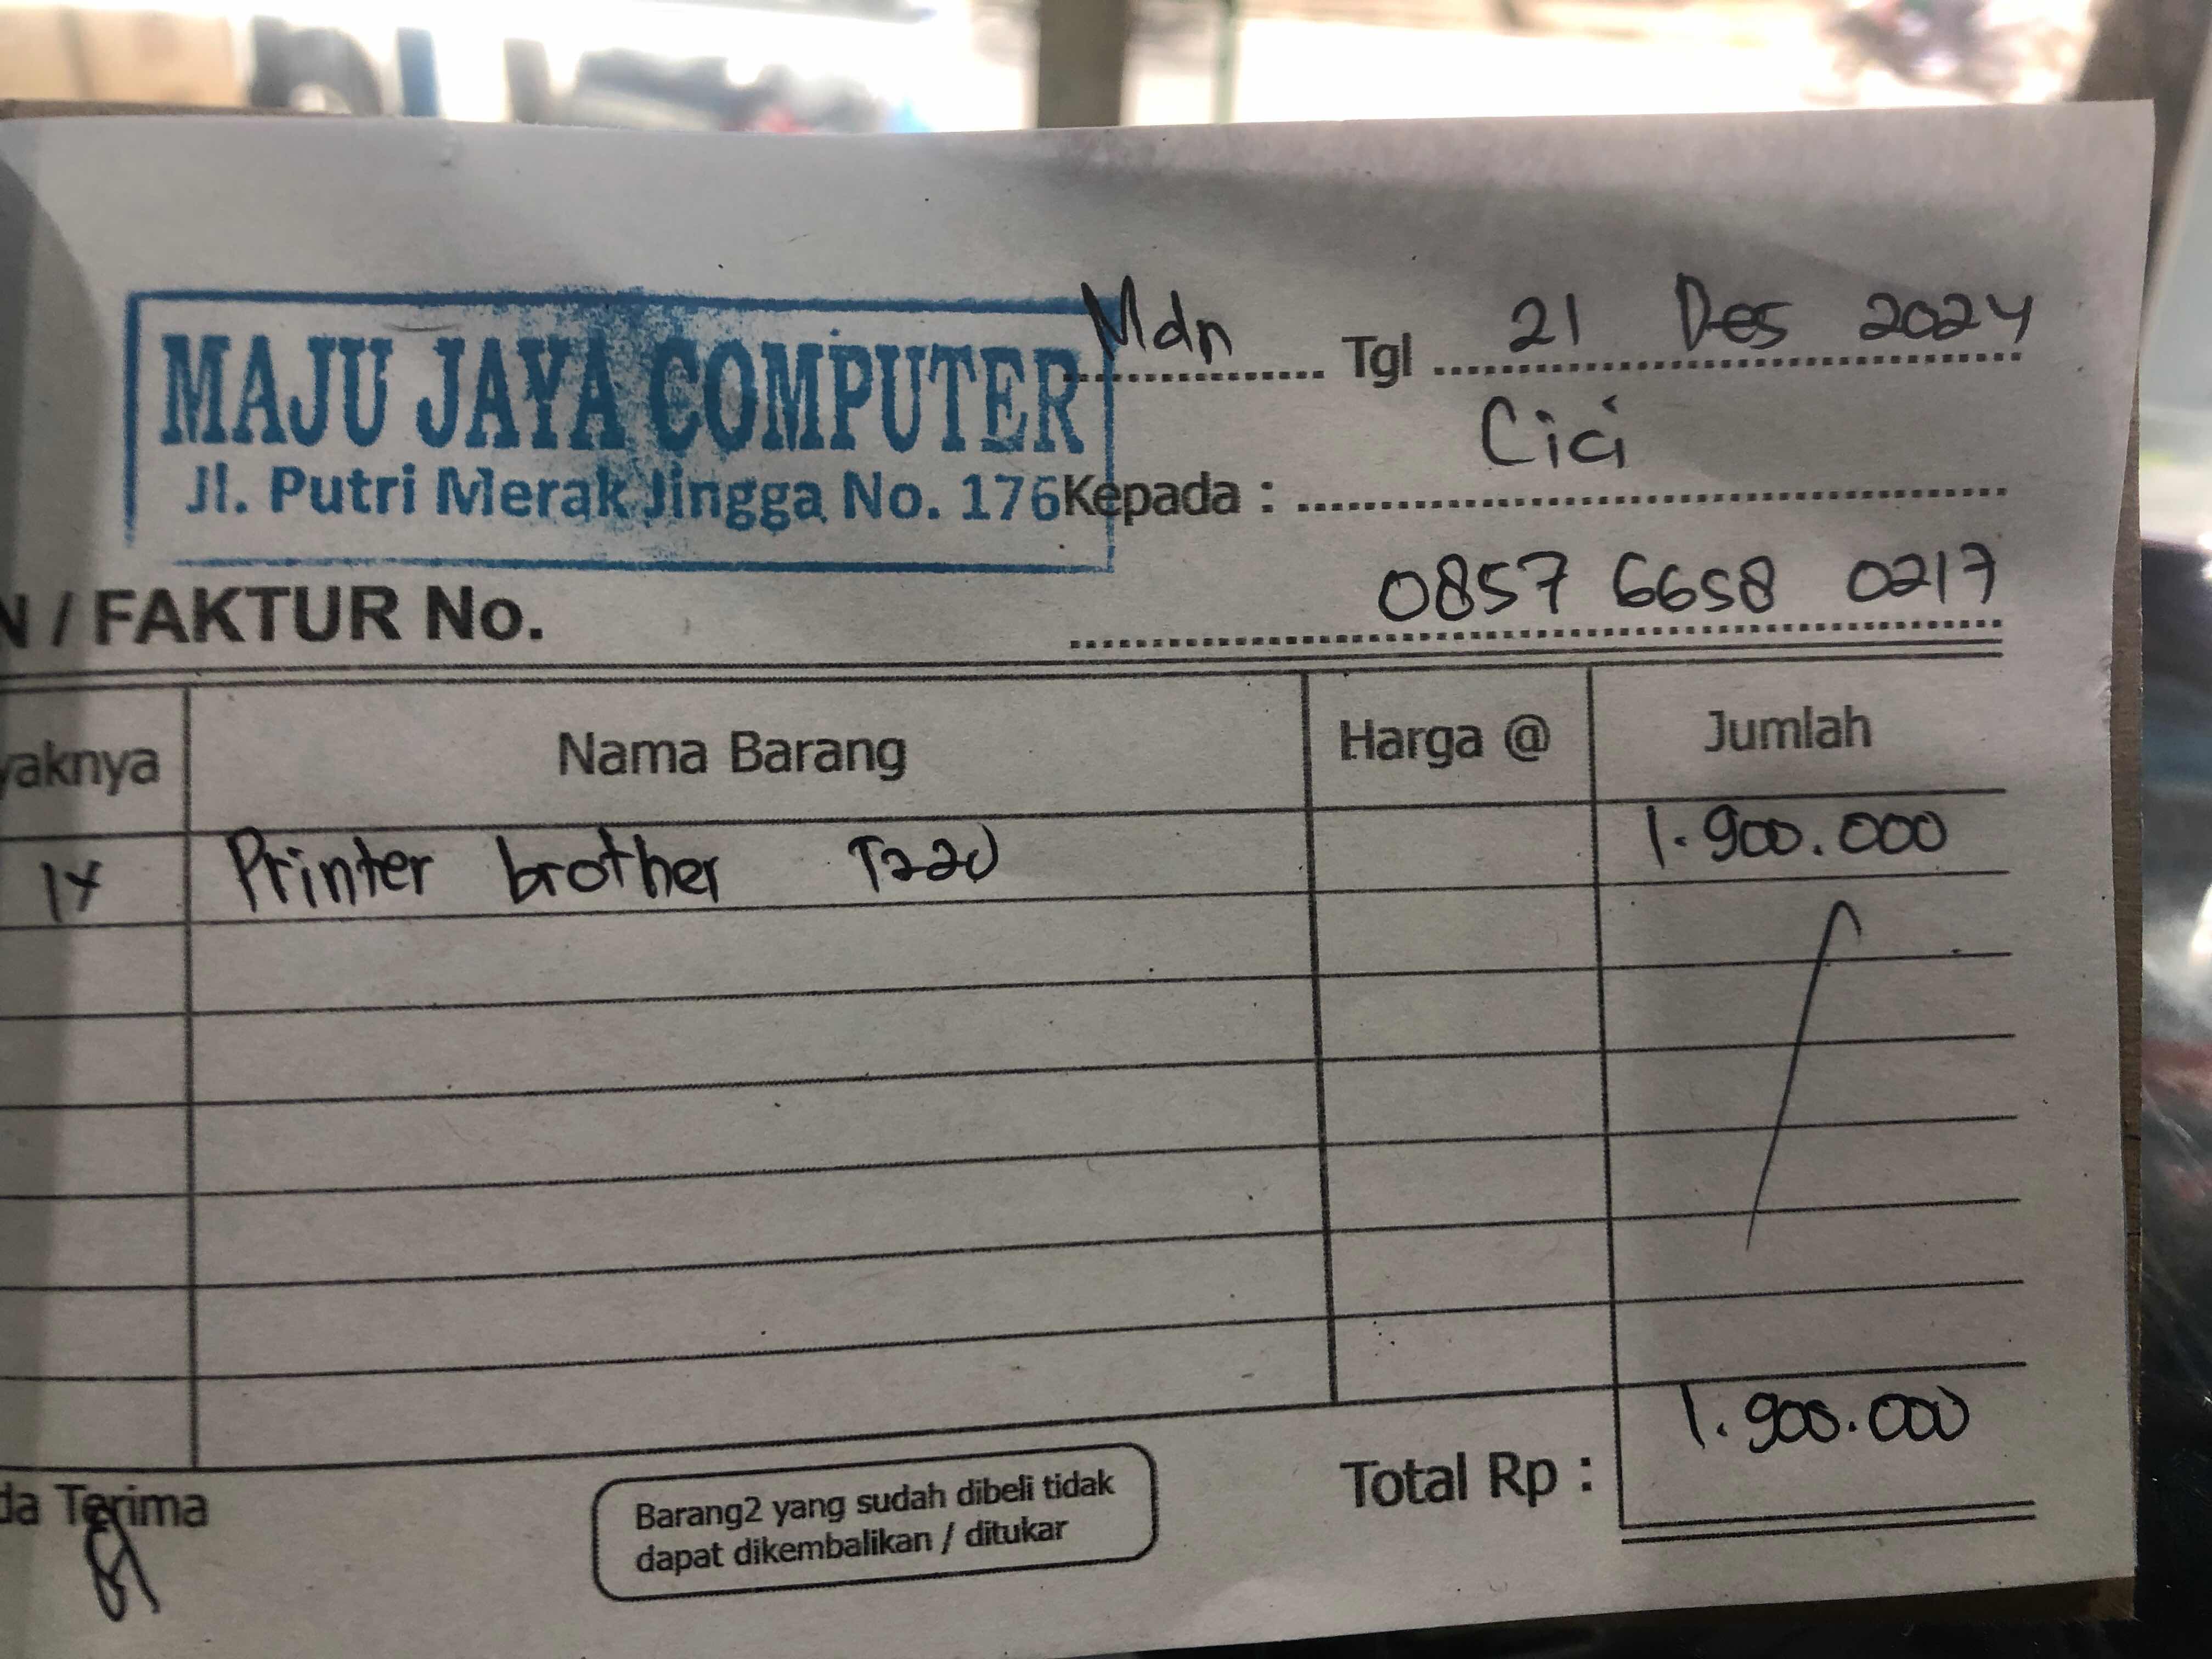 MAJU JAYA COMPUTER
Jl. Putri Merak Jingga No. 176
Mdn Tgl 21 Des 2024
Kepada : Cici
0857 6658 0217
N / FAKTUR No.
yaknya Nama Barang Harga @ Jumlah
1x Printer brother T220 1.900.000
Total Rp : 1.900.000
da Terima
Barang2 yang sudah dibeli tidak
dapat dikembalikan / ditukar